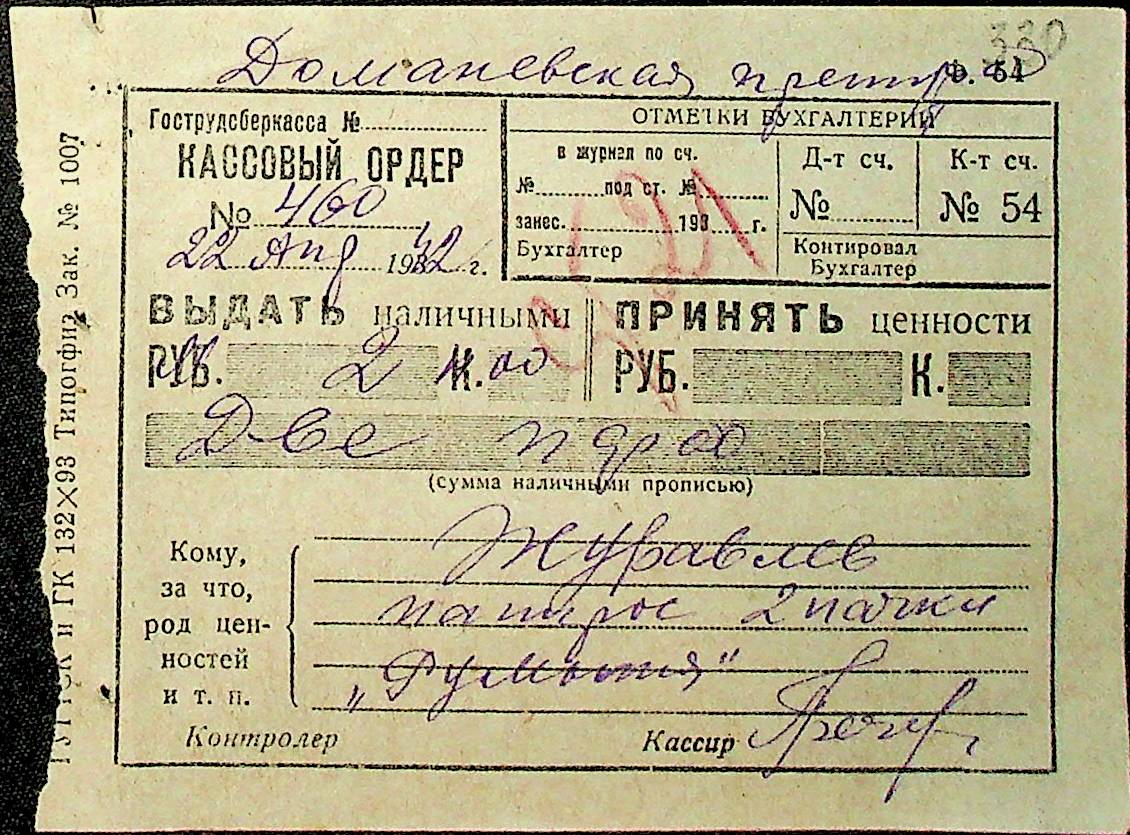 330
Доманевская претура
Ф. 54
Гострудсберкасса №
КАССОВЫЙ ОРДЕР
№ 460
22 Апр 1942 г.
ОТМЕТКИ БУХГАЛТЕРИИ
в журнал по сч.
№ под ст. №
занес. 193 г.
Бухгалтер
Д-т сч.
№
К-т сч.
№ 54
Контировал
Бухгалтер
ВЫДАТЬ наличными
РУБ. 2 К. 00
ПРИНЯТЬ ценности
РУБ. К.
Две
(сумма наличными прописью)
Кому,
за что,
род цен-
ностей
и т. п.
Журавлев
папирос 2 пачки
Контролер
Кассир
и ГК 132×93 Типогфия Зак. № 1007